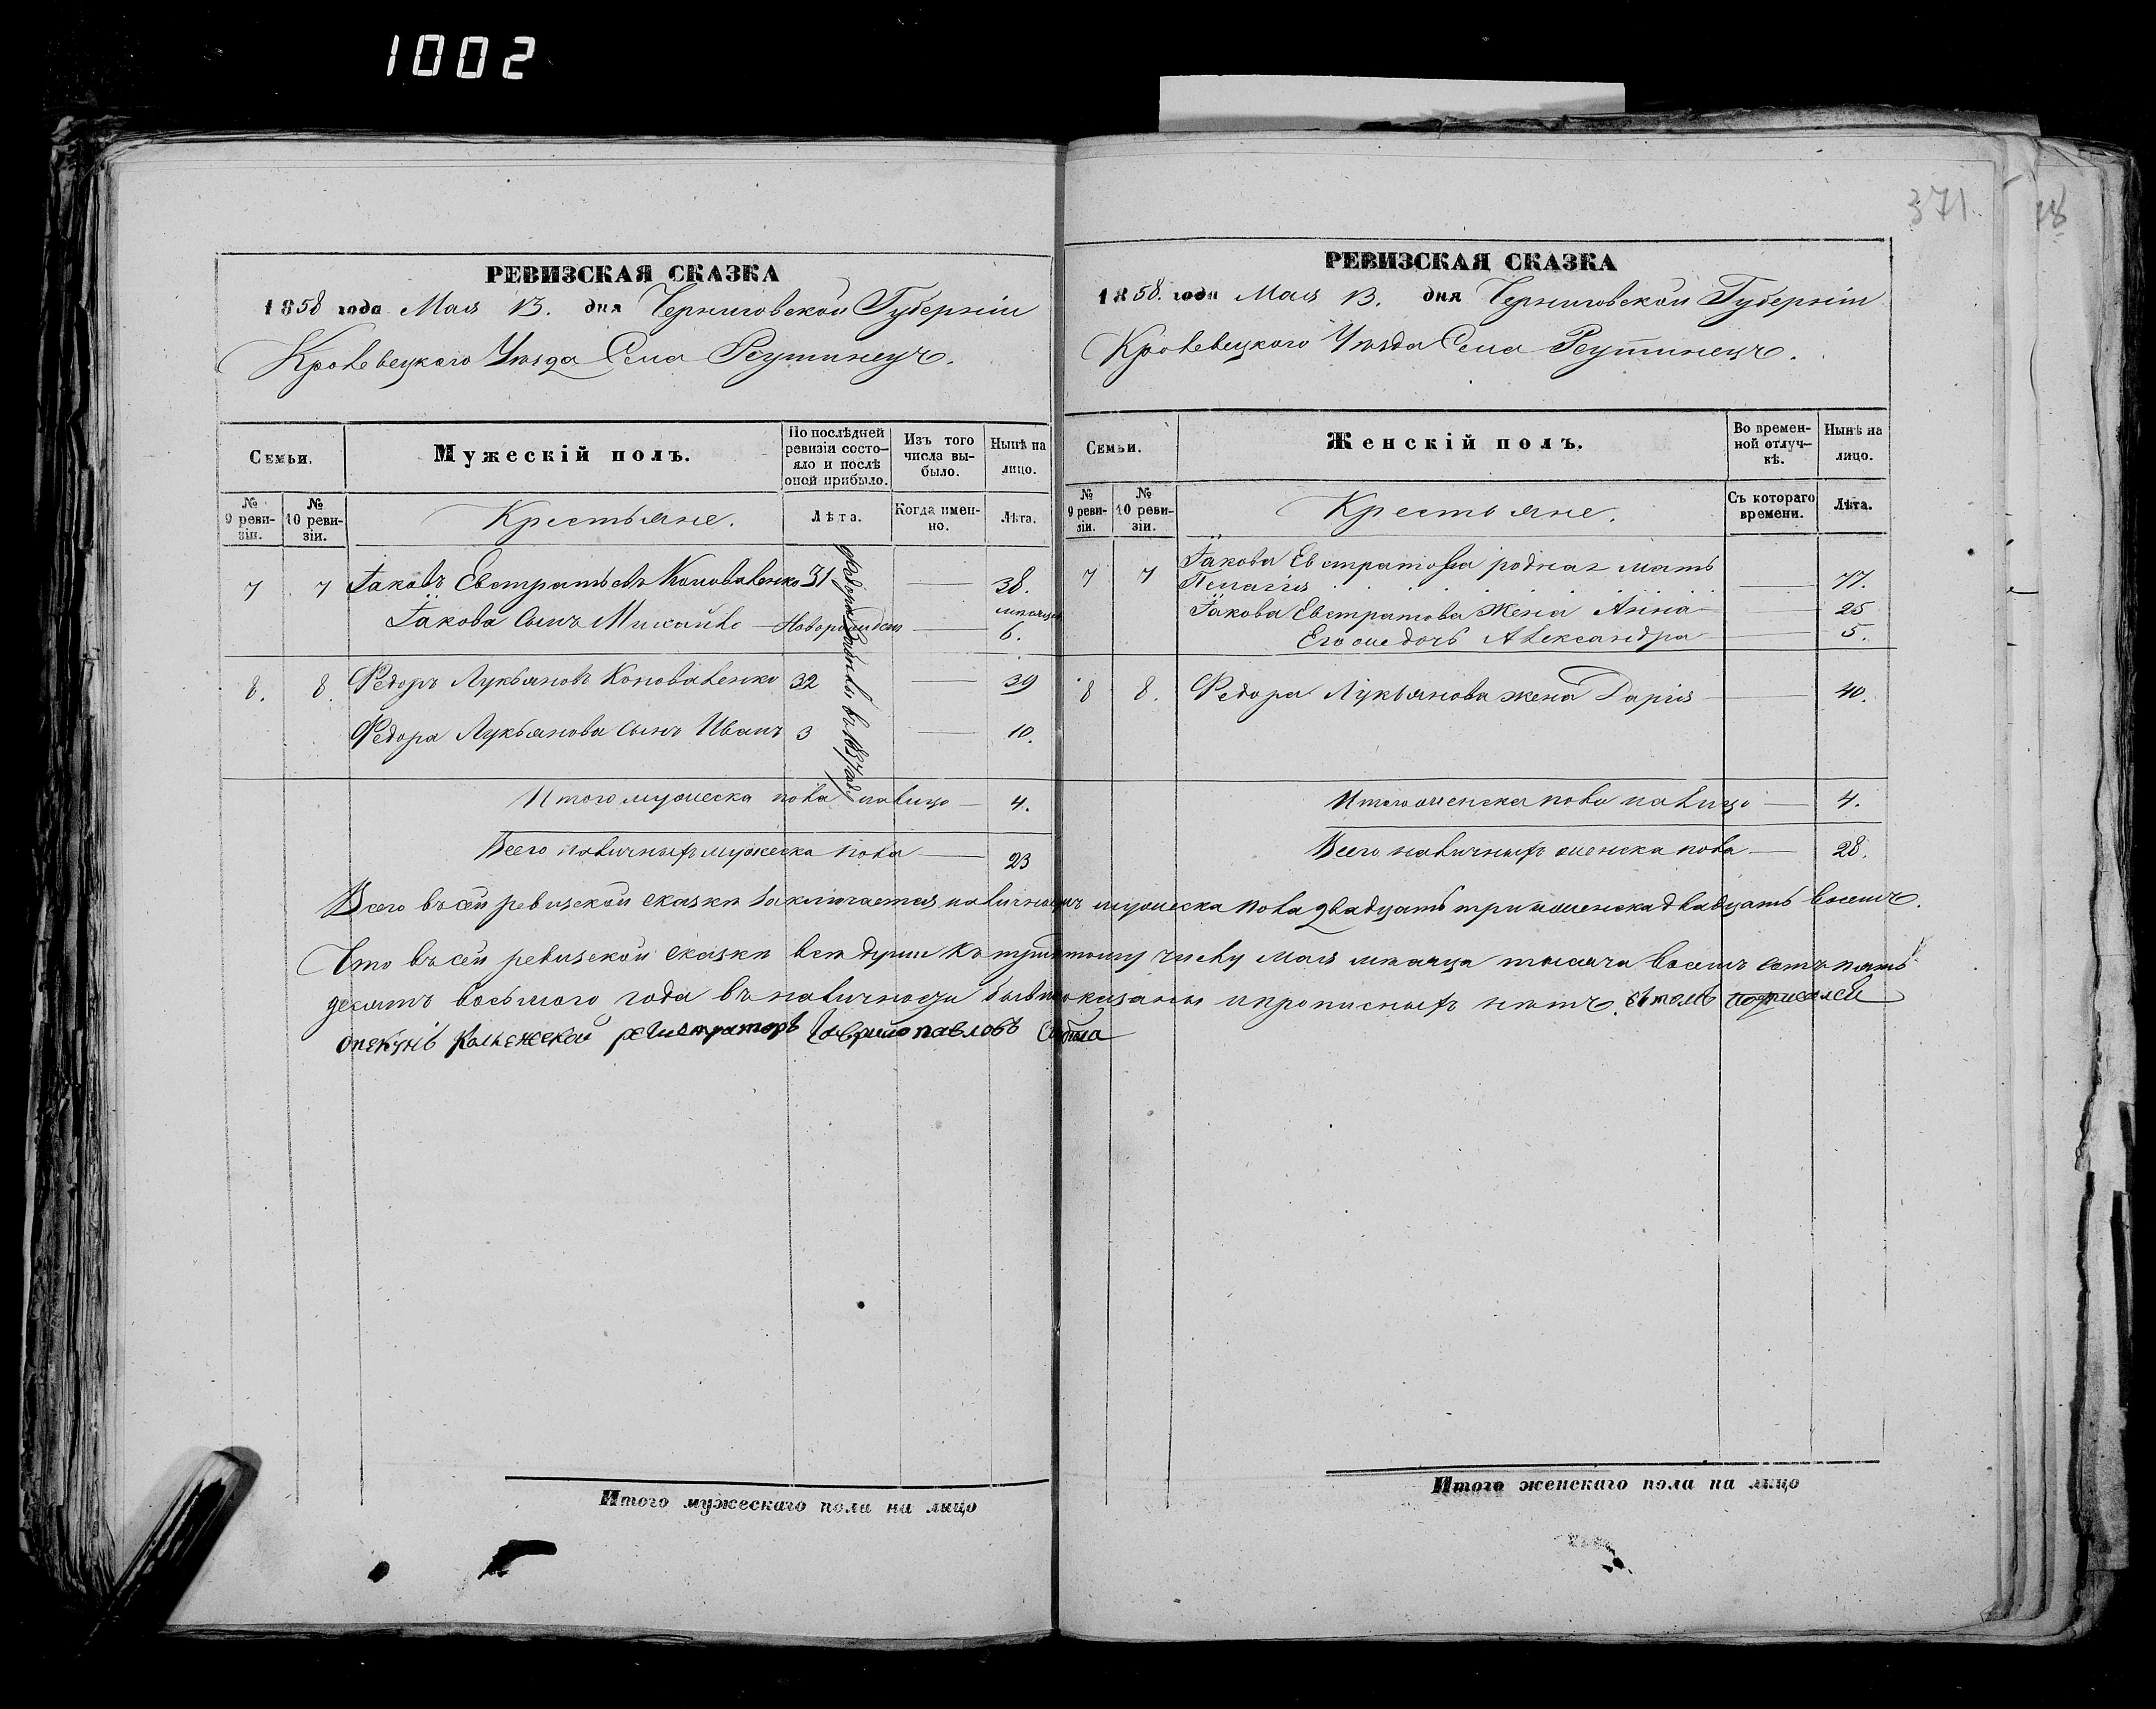 1002
371.
78
РЕВИЗСКАЯ СКАЗКА
1858 года Мая 13. дня Черниговской Губерніи
Кролевецкаго Уѣзда Села Реутинецъ.
Семьи.
Мужескій полъ.
По послѣдней ревизіи состояло и послѣ оной прибыло.
Изъ того числа выбыло.
Нынѣ на лицо.
№ 9 ревизіи.
№ 10 ревизіи.
Крестьяне.
Лѣта.
Когда именно.
Лѣта.
7 7 Іаковъ Евстратьевъ Коноваленко 31 — 38.
Іакова Сынъ Михайло — Новорожденъ — мѣсяцев 6.
8. 8. Федоръ Лукьяновъ Коноваленко 32 — 39
Федора Лукьянова Сынъ Иванъ 3 — 10.
Итого мужеска пола налицо — 4.
Всего наличныхъ мужеска пола — 23
РЕВИЗСКАЯ СКАЗКА
1858. года Мая 13. дня Черниговской Губерніи
Кролевецкаго Уѣзда Села Реутинецъ.
Семьи.
Женскій полъ.
Во временной отлучкѣ.
Нынѣ на лицо.
№ 9 ревизіи.
№ 10 ревизіи.
Крестьяне.
Съ котораго времени.
Лѣта.
7 7 Іакова Евстратова родная мать
Пелагія — 77.
Іакова Евстратова Жена Анна — 25
Его же дочь Александра — 5.
8 8. Федора Лукьянова жена Дарія — 40.
Итого женска пола налицо — 4.
Всего наличныхъ женска пола — 28.
Всего въ сей ревизской сказкѣ заключается наличныхъ мужеска пола двадцать три женска двадцать восемь.
Что въ сей ревизской сказкѣ всѣ души къ числу Мая мѣсяца тысяча восемь сотъ пять
десятъ восьмого года въ наличности показаны и прописныхъ нѣтъ. въ томъ подписался
опекунъ Колежской регистраторъ Гаврило Павловъ
Итого мужескаго пола на лицо
Итого женскаго пола на лицо